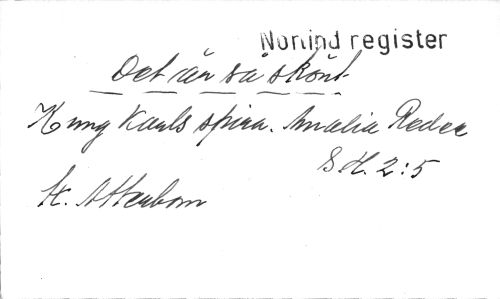 Norlind register
Det är så skönt
Kung Karls spira. Amalia Redec
S. H. 2:5
K. Attenbom